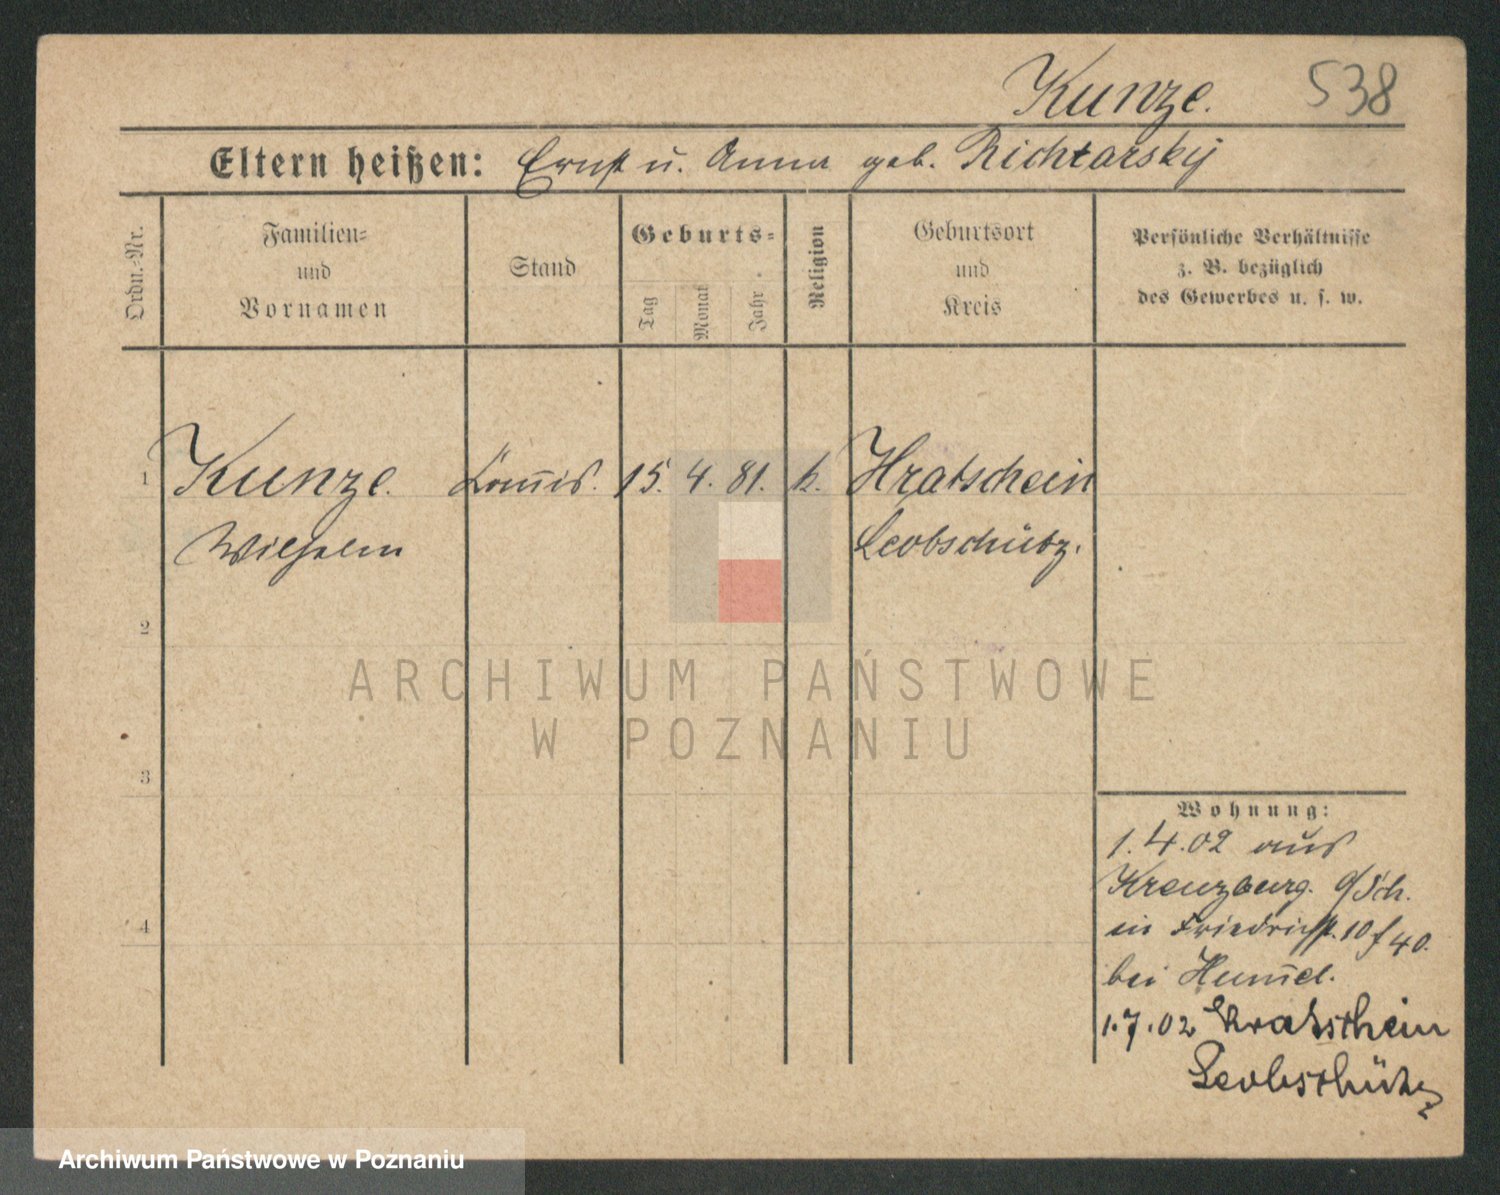 Kunze. 538
Eltern heißen: Ernst u. Anna geb. Richtarsky
Ordn.-Nr.
Familien-
und
Vornamen
Stand
Geburts-
Tag
Monat
Jahr
Religion
Geburtsort
und
Kreis
Persönliche Verhältnisse
z. B. bezüglich
des Gewerbes u. s. w.
1 Kunze. Commis. 15. 4. 81. k. Hratschein
Wilhelm Leobschütz.
2
ARCHIWUM PAŃSTWOWE
W POZNANIU
3
4
Wohnung:
1.4.02 aus
Kreuzburg. O/Sch.
in Friedrichstr. 10 f 40.
bei Hum̅el.
1.7.02 Hratschein
Leobschütz
Archiwum Państwowe w Poznaniu